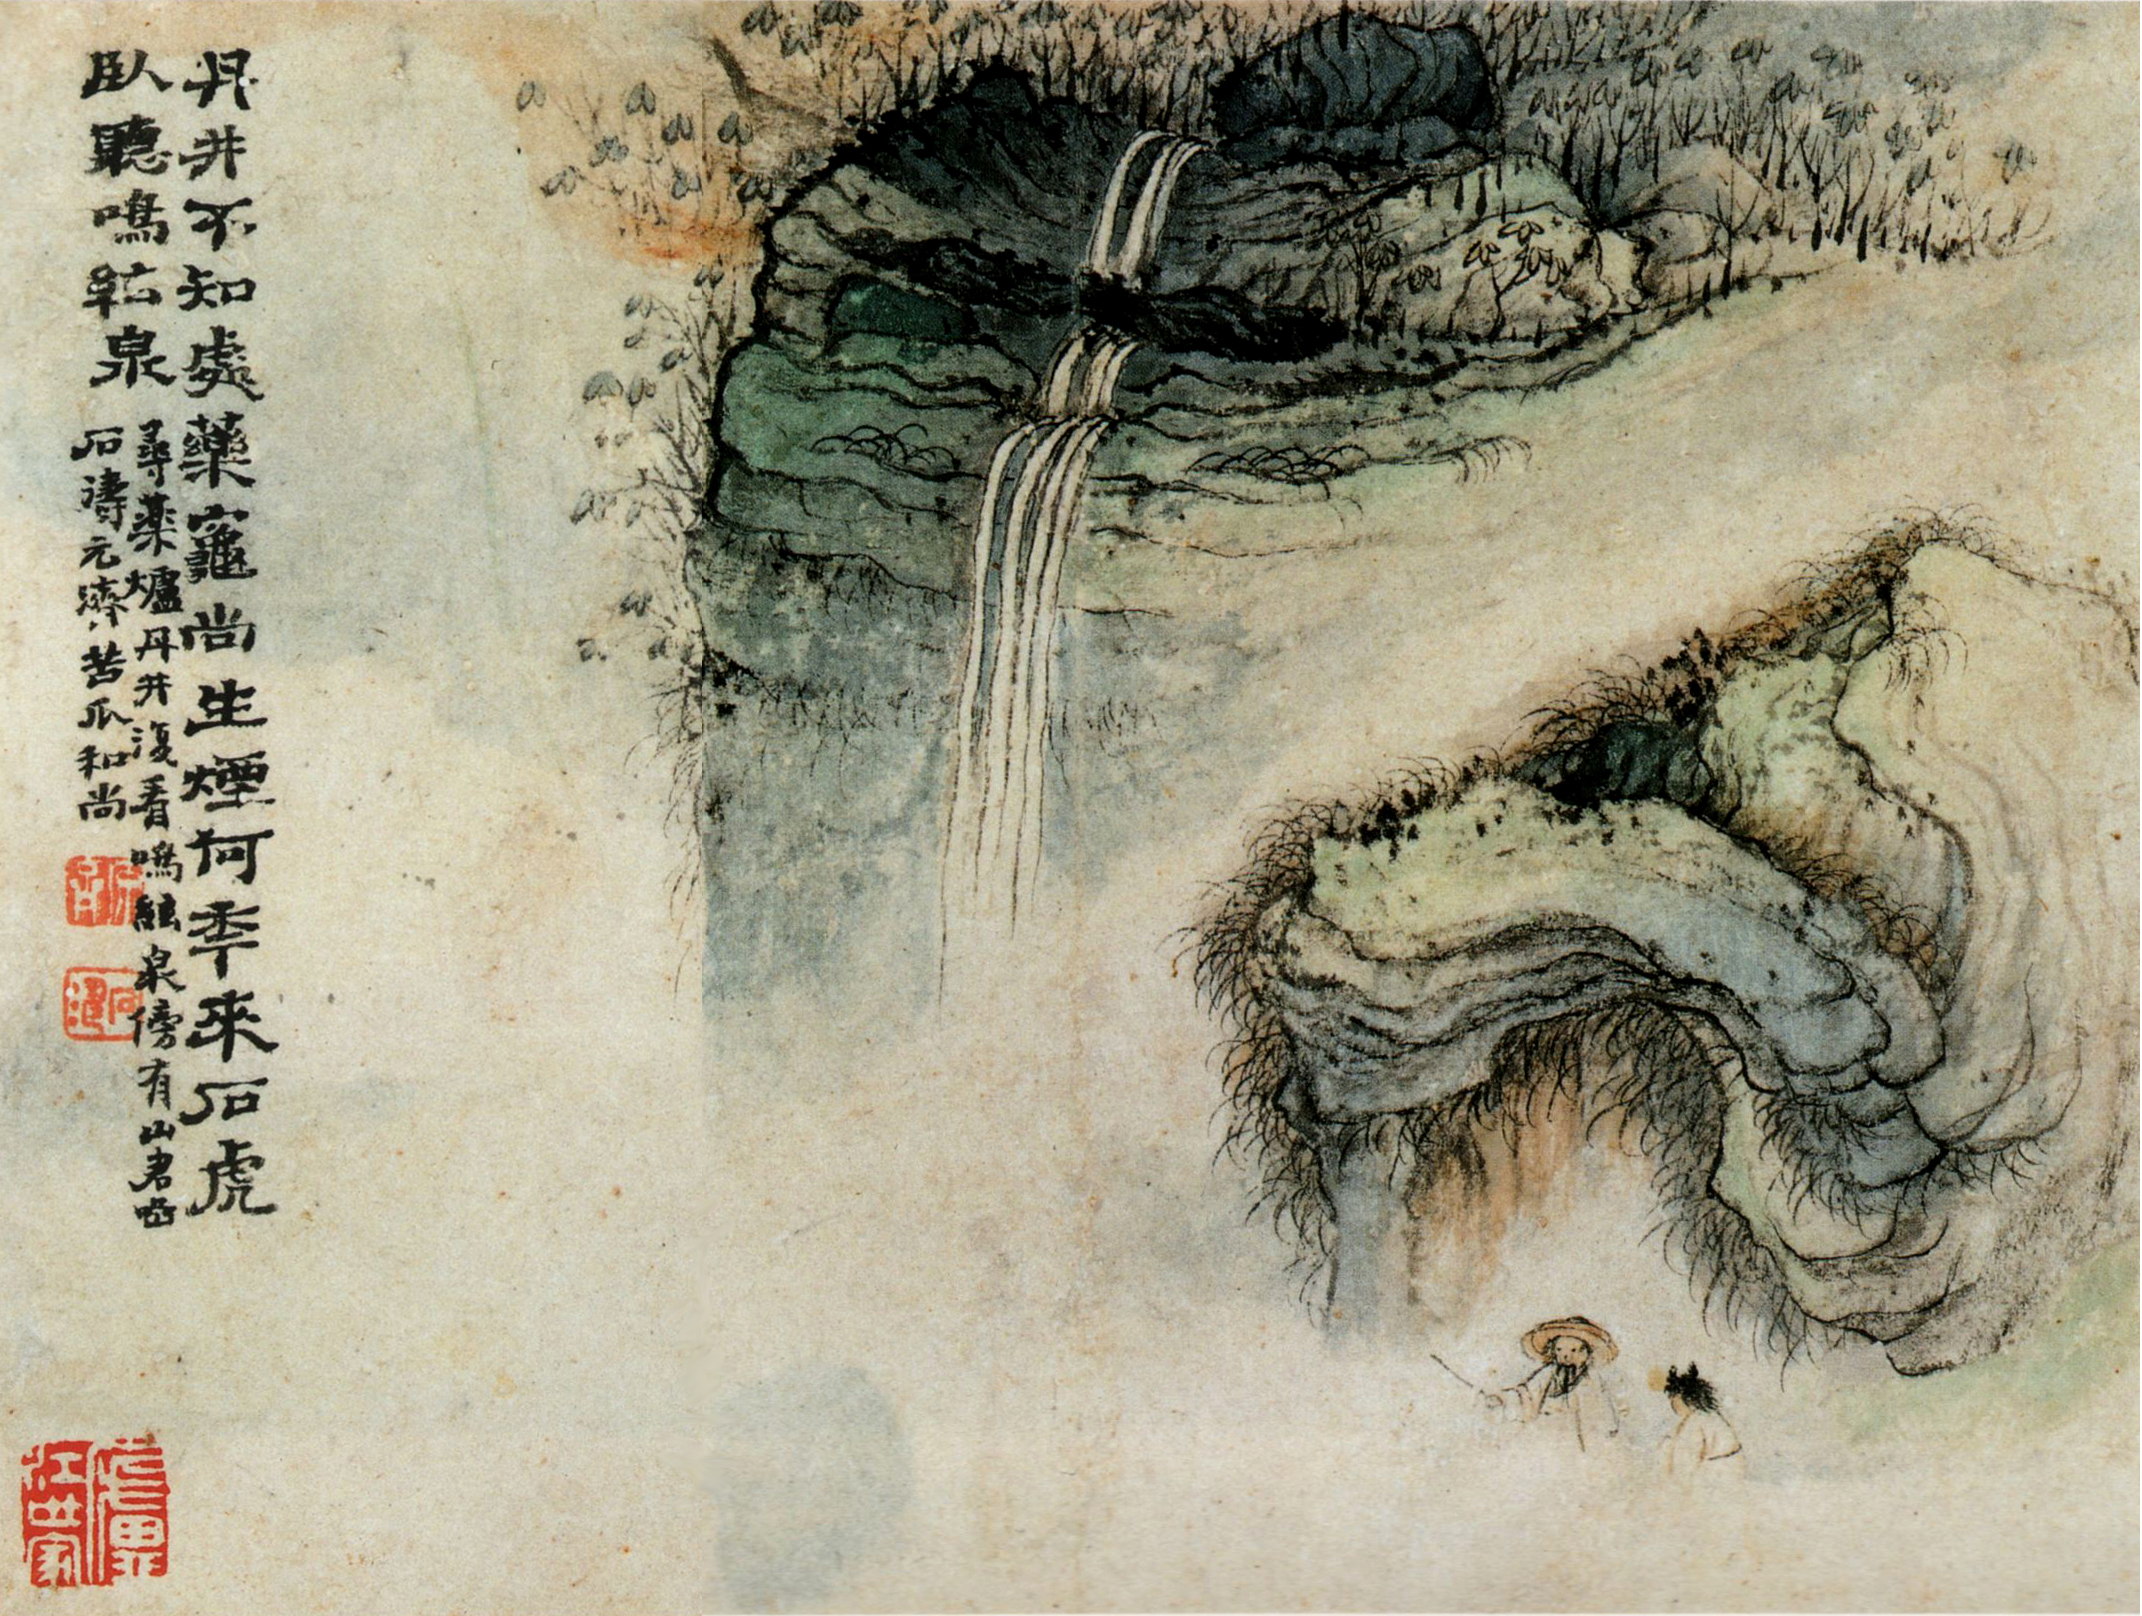 丹井不知處藥竈尚生煙何季來石虎
臥聽鳴弦泉
尋藥爐丹井復看鳴絃泉傍有山君嵒
石濤元濟苦瓜和尚